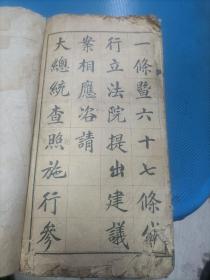 一條暨六十七條代
行立法院提出建議
案相應咨請
大總統查照施行參